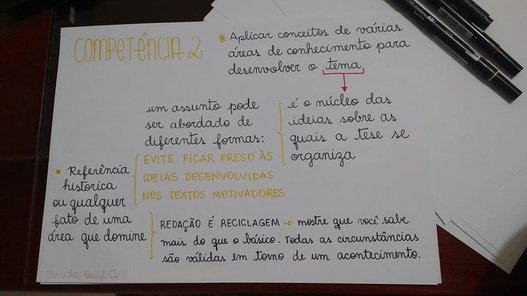 COMPETÊNCIA 2
* Aplicar conceitos de várias
áreas de conhecimento para
desenvolver o tema
é o núcleo das
ideias sobre as
quais a tese se
organiza
um assunto pode
ser abordado de
diferentes formas:
EVITE FICAR PRESO ÀS
IDEIAS DESENVOLVIDAS
NOS TEXTOS MOTIVADORES
• Referência
histórica
ou qualquer
fato de uma
área que domine
REDAÇÃO É RECICLAGEM → mostre que você sabe
mais do que o básico. Todas as circunstâncias
são válidas em torno de um acontecimento.